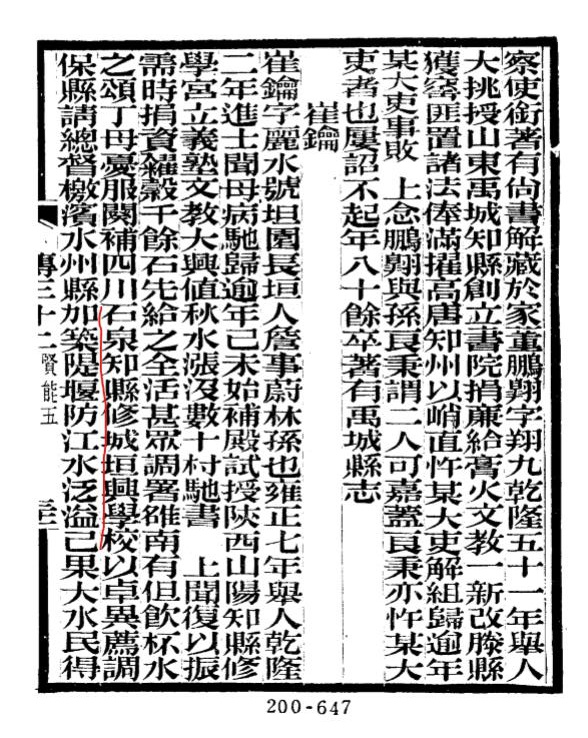 察使銜著有尚書解藏於家董鵬翱字翔九乾隆五十一年舉人
大挑授山東禹城知縣創立書院捐廉給膏火文教一新改滕縣
獲窩匪置諸法俸滿擢高唐知州以峭直忤某大吏解組歸逾年
某大吏事敗　上念鵬翱與孫良秉謂二人可嘉蓋良秉亦忤某大
吏者也屢詔不起年八十餘卒著有禹城縣志
崔鑰
崔鑰字麗水號垣園長垣人詹事蔚林孫也雍正七年舉人乾隆
二年進士聞母病馳歸逾年己未始補殿試授陝西山陽知縣修
學宮立義塾文教大興值秋水漲沒數十村馳書　上聞復以振
需時捐資糴穀千餘石先給之全活甚眾調署雒南有但飲杯水
之頌丁母憂服闋補四川石泉知縣修城垣興學校以卓異薦調
保縣請總督檄濱水州縣加築隄堰防江水泛溢已果大水民得
傳三十二賢能五
三二
200-647